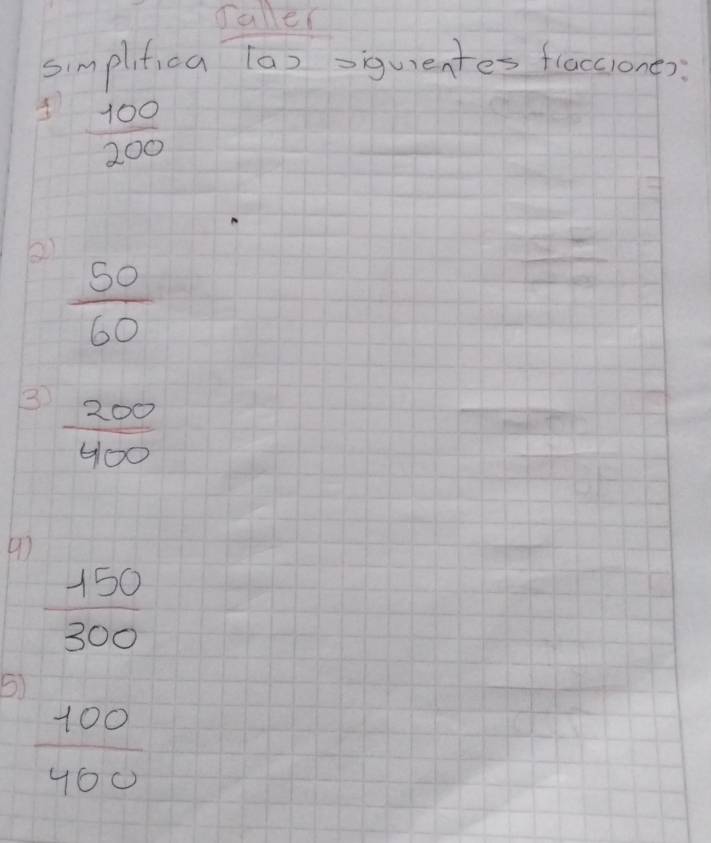 Taller
simplifica las siguientes fracciones:
1) 100
200
2) 50
60
3) 200
400
4) 150
300
5) 100
400